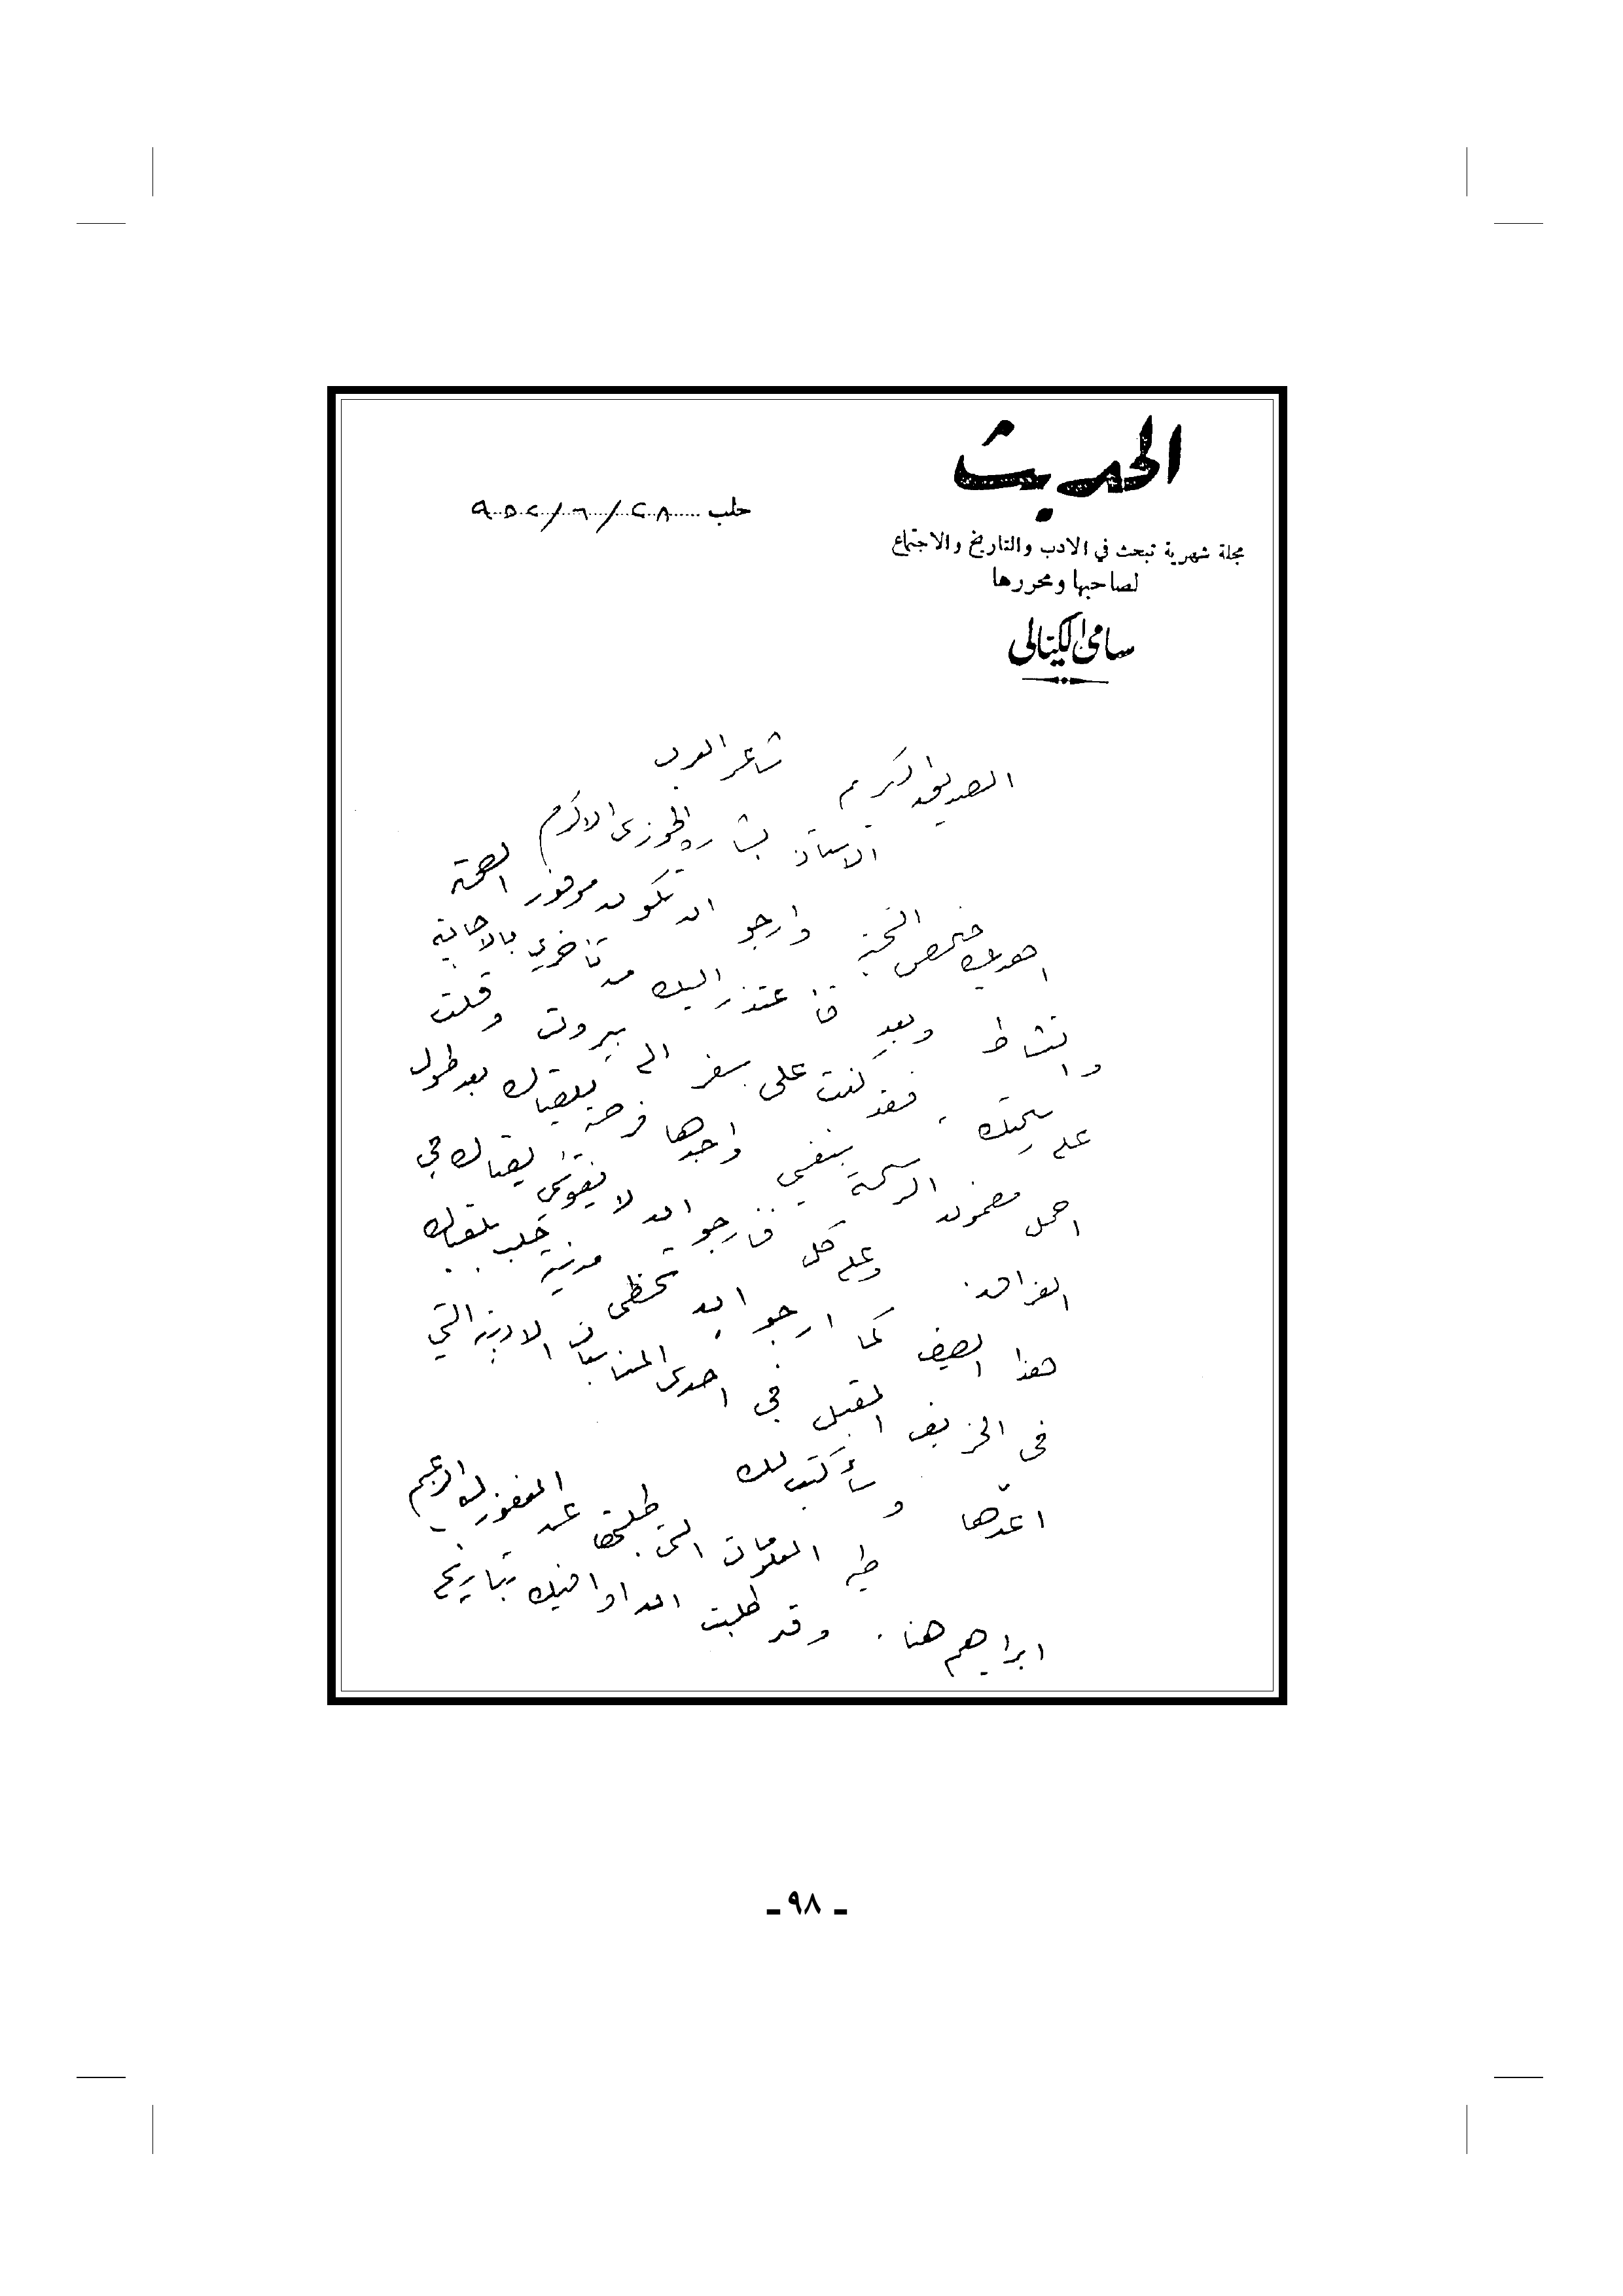 الحديث
مجلة شهرية تبحث في الادب والتاريخ والاجتماع
لصاحبها ومحررها
سامي الكيالي
حلب ٢٨/٦/٩٥٢
الصديق الكريم شاعر العرب
الاستاذ بشاره الخوري الاكرم
اهديك خالص التحية وارجو ان تكون موفور الصحة
والنشاط وبعد فأعتذر اليك من تأخري بالاجابة
على رسالتك، فقد كنت على سفر الى بيروت وقلت
احمل مضمون الرسالة بنفسي واجدها فرصة للقياك بعد طول
الفراق. وعلى كل فأرجو ان لا تفوتني لقياك في
هذا الصيف كما ارجو ان تحظى مدينة حلب بلقياك
في الخريف المقبل في احدى المناسبات الادبية التي
اعدّها وسأكتب لك
طيه المعلومات التي طلبتها عن المغفور له الزعيم
ابراهيم هنانو. وقد طلبت ان اوافيك بتاريخ
ـ ٩٨ ـ